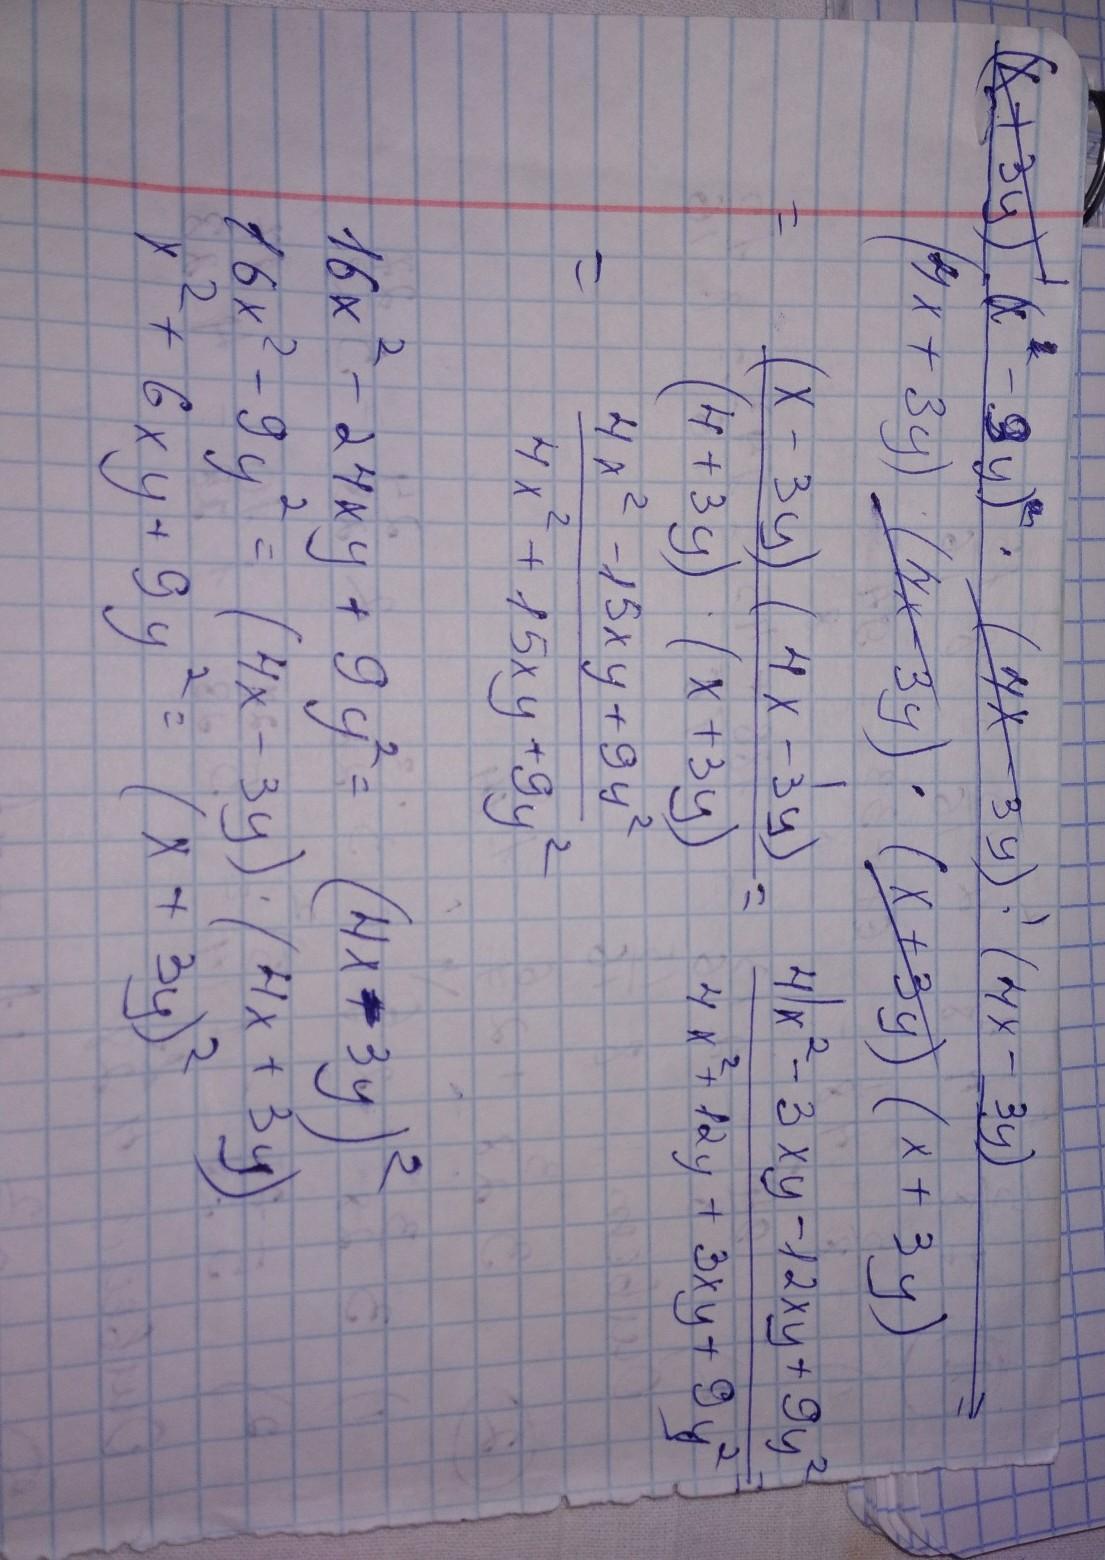 (x+3y)(x-9y)·(4x-3y)·(4x-3y)
(4x+3y)·(4x-3y)·(x+3y)(x+3y) =
= (x-3y)(4x-3y)
(4+3y)·(x+3y) =
4x²-3xy-12xy+9y²
4x²+12y+3xy+9y² =
= 4x²-15xy+9y²
4x²+15xy+9y²
16x²-24xy+9y²= (4x-3y)²
16x²-9y²=(4x-3y)·(4x+3y)
x²+6xy+9y²=(x+3y)²